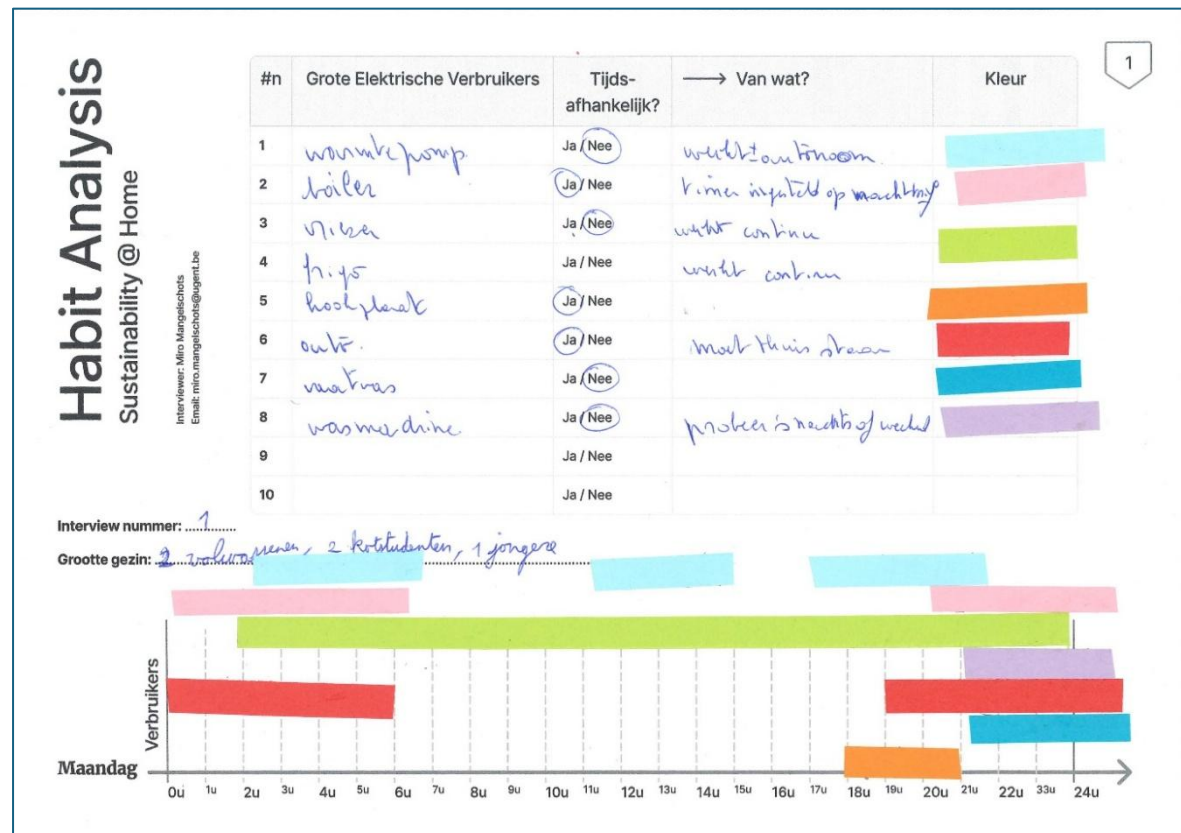 Habit Analysis
Sustainability @ Home
Interviewer: Miro Mangelschots
Email: miro.mangelschots@ugent.be
1
#n Grote Elektrische Verbruikers Tijds-afhankelijk? → Van wat? Kleur
1 warmtepomp Ja / Nee werkt ± autonoom
2 boiler Ja / Nee timer ingesteld op
3 Ja / Nee werkt continu
4 frigo Ja / Nee werkt continu
5 kookplaat Ja / Nee
6 auto. Ja / Nee moet thuis staan
7 vaatwas Ja / Nee
8 wasmachine Ja / Nee probeer 's nachts of
9 Ja / Nee
10 Ja / Nee
Interview nummer: 1
Grootte gezin: 2 volwassenen, 2 kotstudenten, 1 jongere
Verbruikers
Maandag
0u 1u 2u 3u 4u 5u 6u 7u 8u 9u 10u 11u 12u 13u 14u 15u 16u 17u 18u 19u 20u 21u 22u 33u 24u